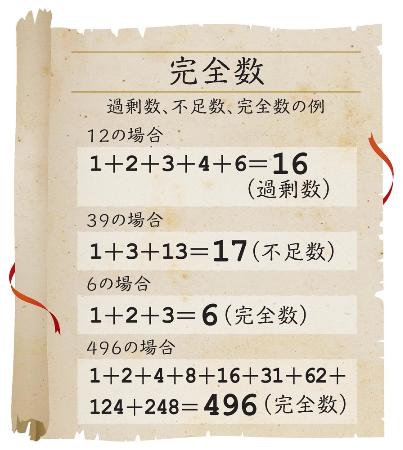 完全数
過剰数、不足数、完全数の例
12の場合
1+2+3+4+6=16
(過剰数)
39の場合
1+3+13=17(不足数)
6の場合
1+2+3=6(完全数)
496の場合
1+2+4+8+16+31+62+
124+248=496(完全数)